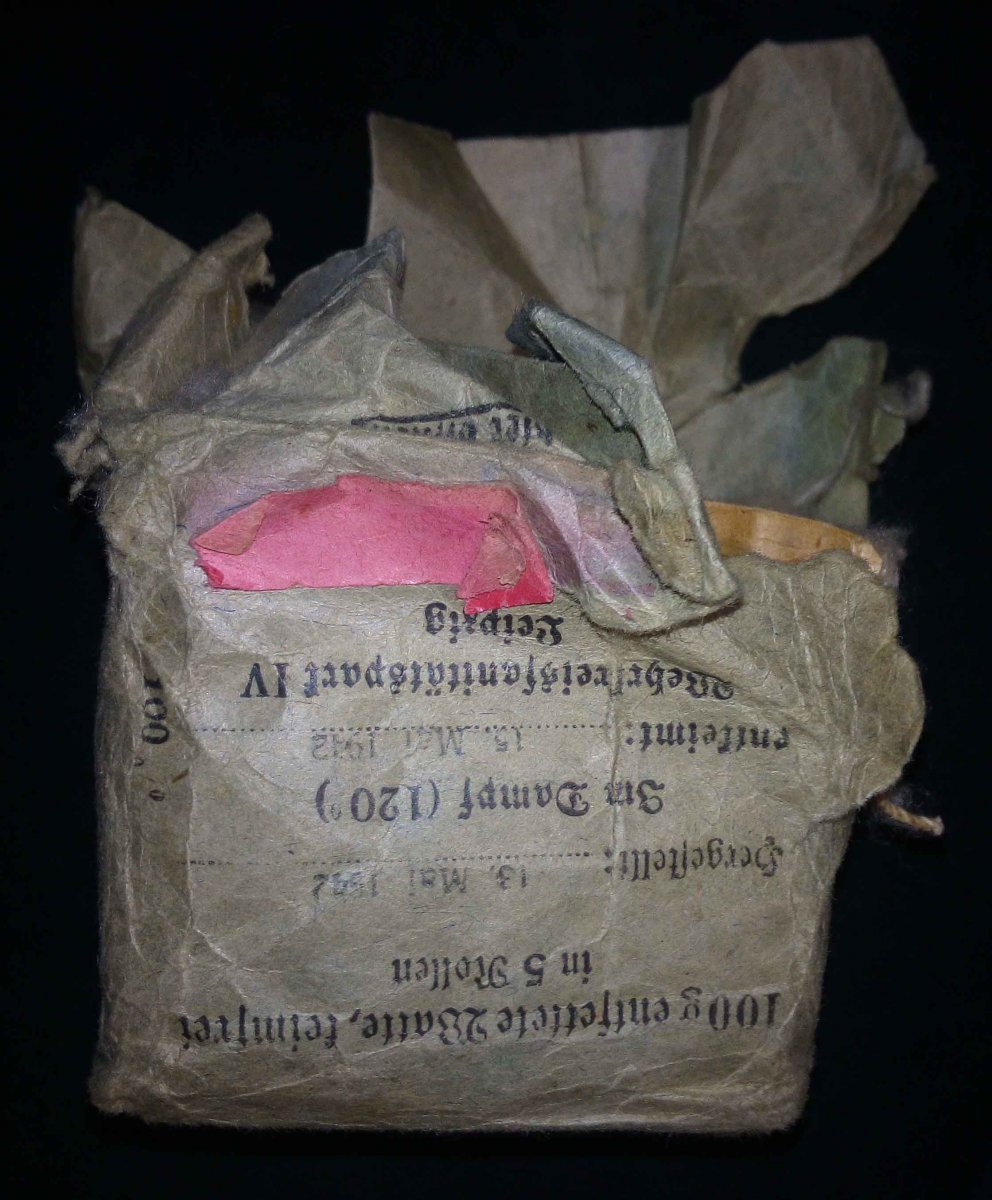 100 g entfettete Watte, keimfrei
in 5 Rollen
13. Mai 1942
Hergestellt:
Im Dampf (120°)
15. Mai 1942
entkeimt:
Wehrkreissanitätspark IV
Leipzig
100
hier